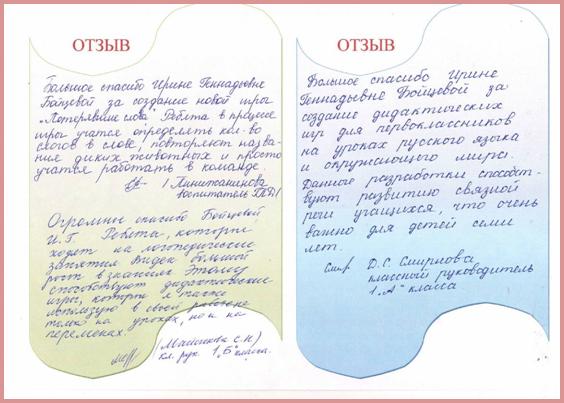 ОТЗЫВ
Большое спасибо Ирине Геннадьевне
Бойцевой за создание новой игры
„Потерявшие слова" Ребята в процессе
игры учатся определять кол-во
слогов в слове, повторяют назва-
ния диких животных и просто
учатся работать в команде.
воспитатель ГПД
Огромны спасибо Бойцевой
И.Г. Ребята, которые
ходят на логопедические
занятия виден большой
рост в знаниях Этому
способствуют дидактические
игры, которые я также
использую в своей работе не
только на уроках, но и на
переменах.
кл. рук. 1„Б" класса.
ОТЗЫВ
Большое спасибо Ирине
Геннадьевне Бойцевой за
создание дидактических
игр для первоклассников
на уроках русского языка
и окружающего мира.
Данные разработки способст-
вуют развитию связной
речи учащихся, что очень
важно для детей семи
лет.
Д.С. Смирнова
классный руководитель
1„А" класса